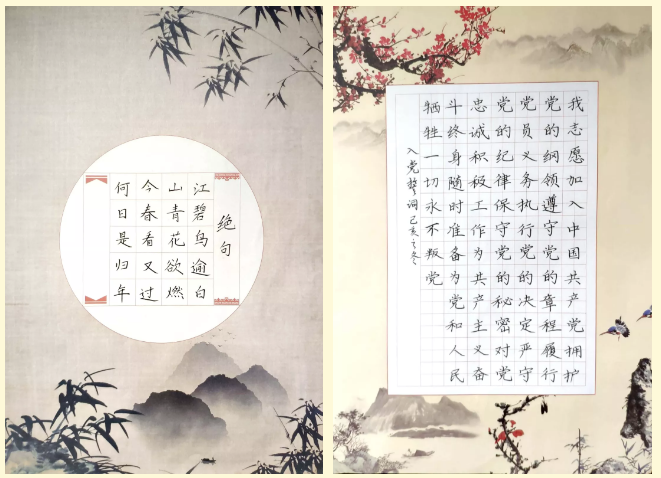 绝句
江碧鸟逾白
山青花欲燃
今春看又过
何日是归年
我志愿加入中国共产党拥护
党的纲领遵守党的章程履行
党员义务执行党的决定严守
党的纪律保守党的秘密对党
忠诚积极工作为共产主义奋
斗终身随时准备为党和人民
牺牲一切永不叛党
入党誓词己亥之冬